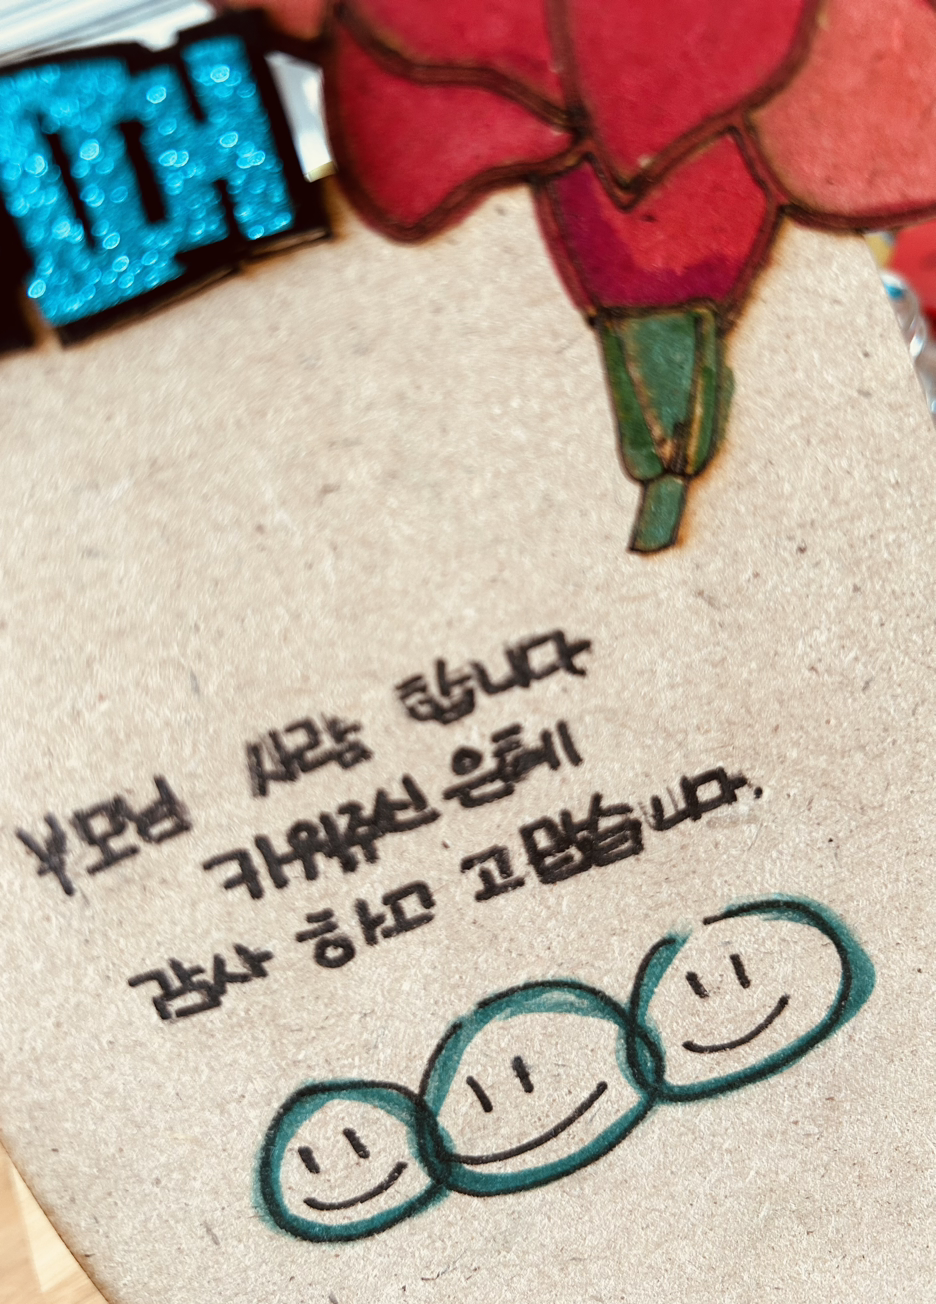 부모님 사랑 합니다
키워주신 은혜
감사 하며 고맙습니다.